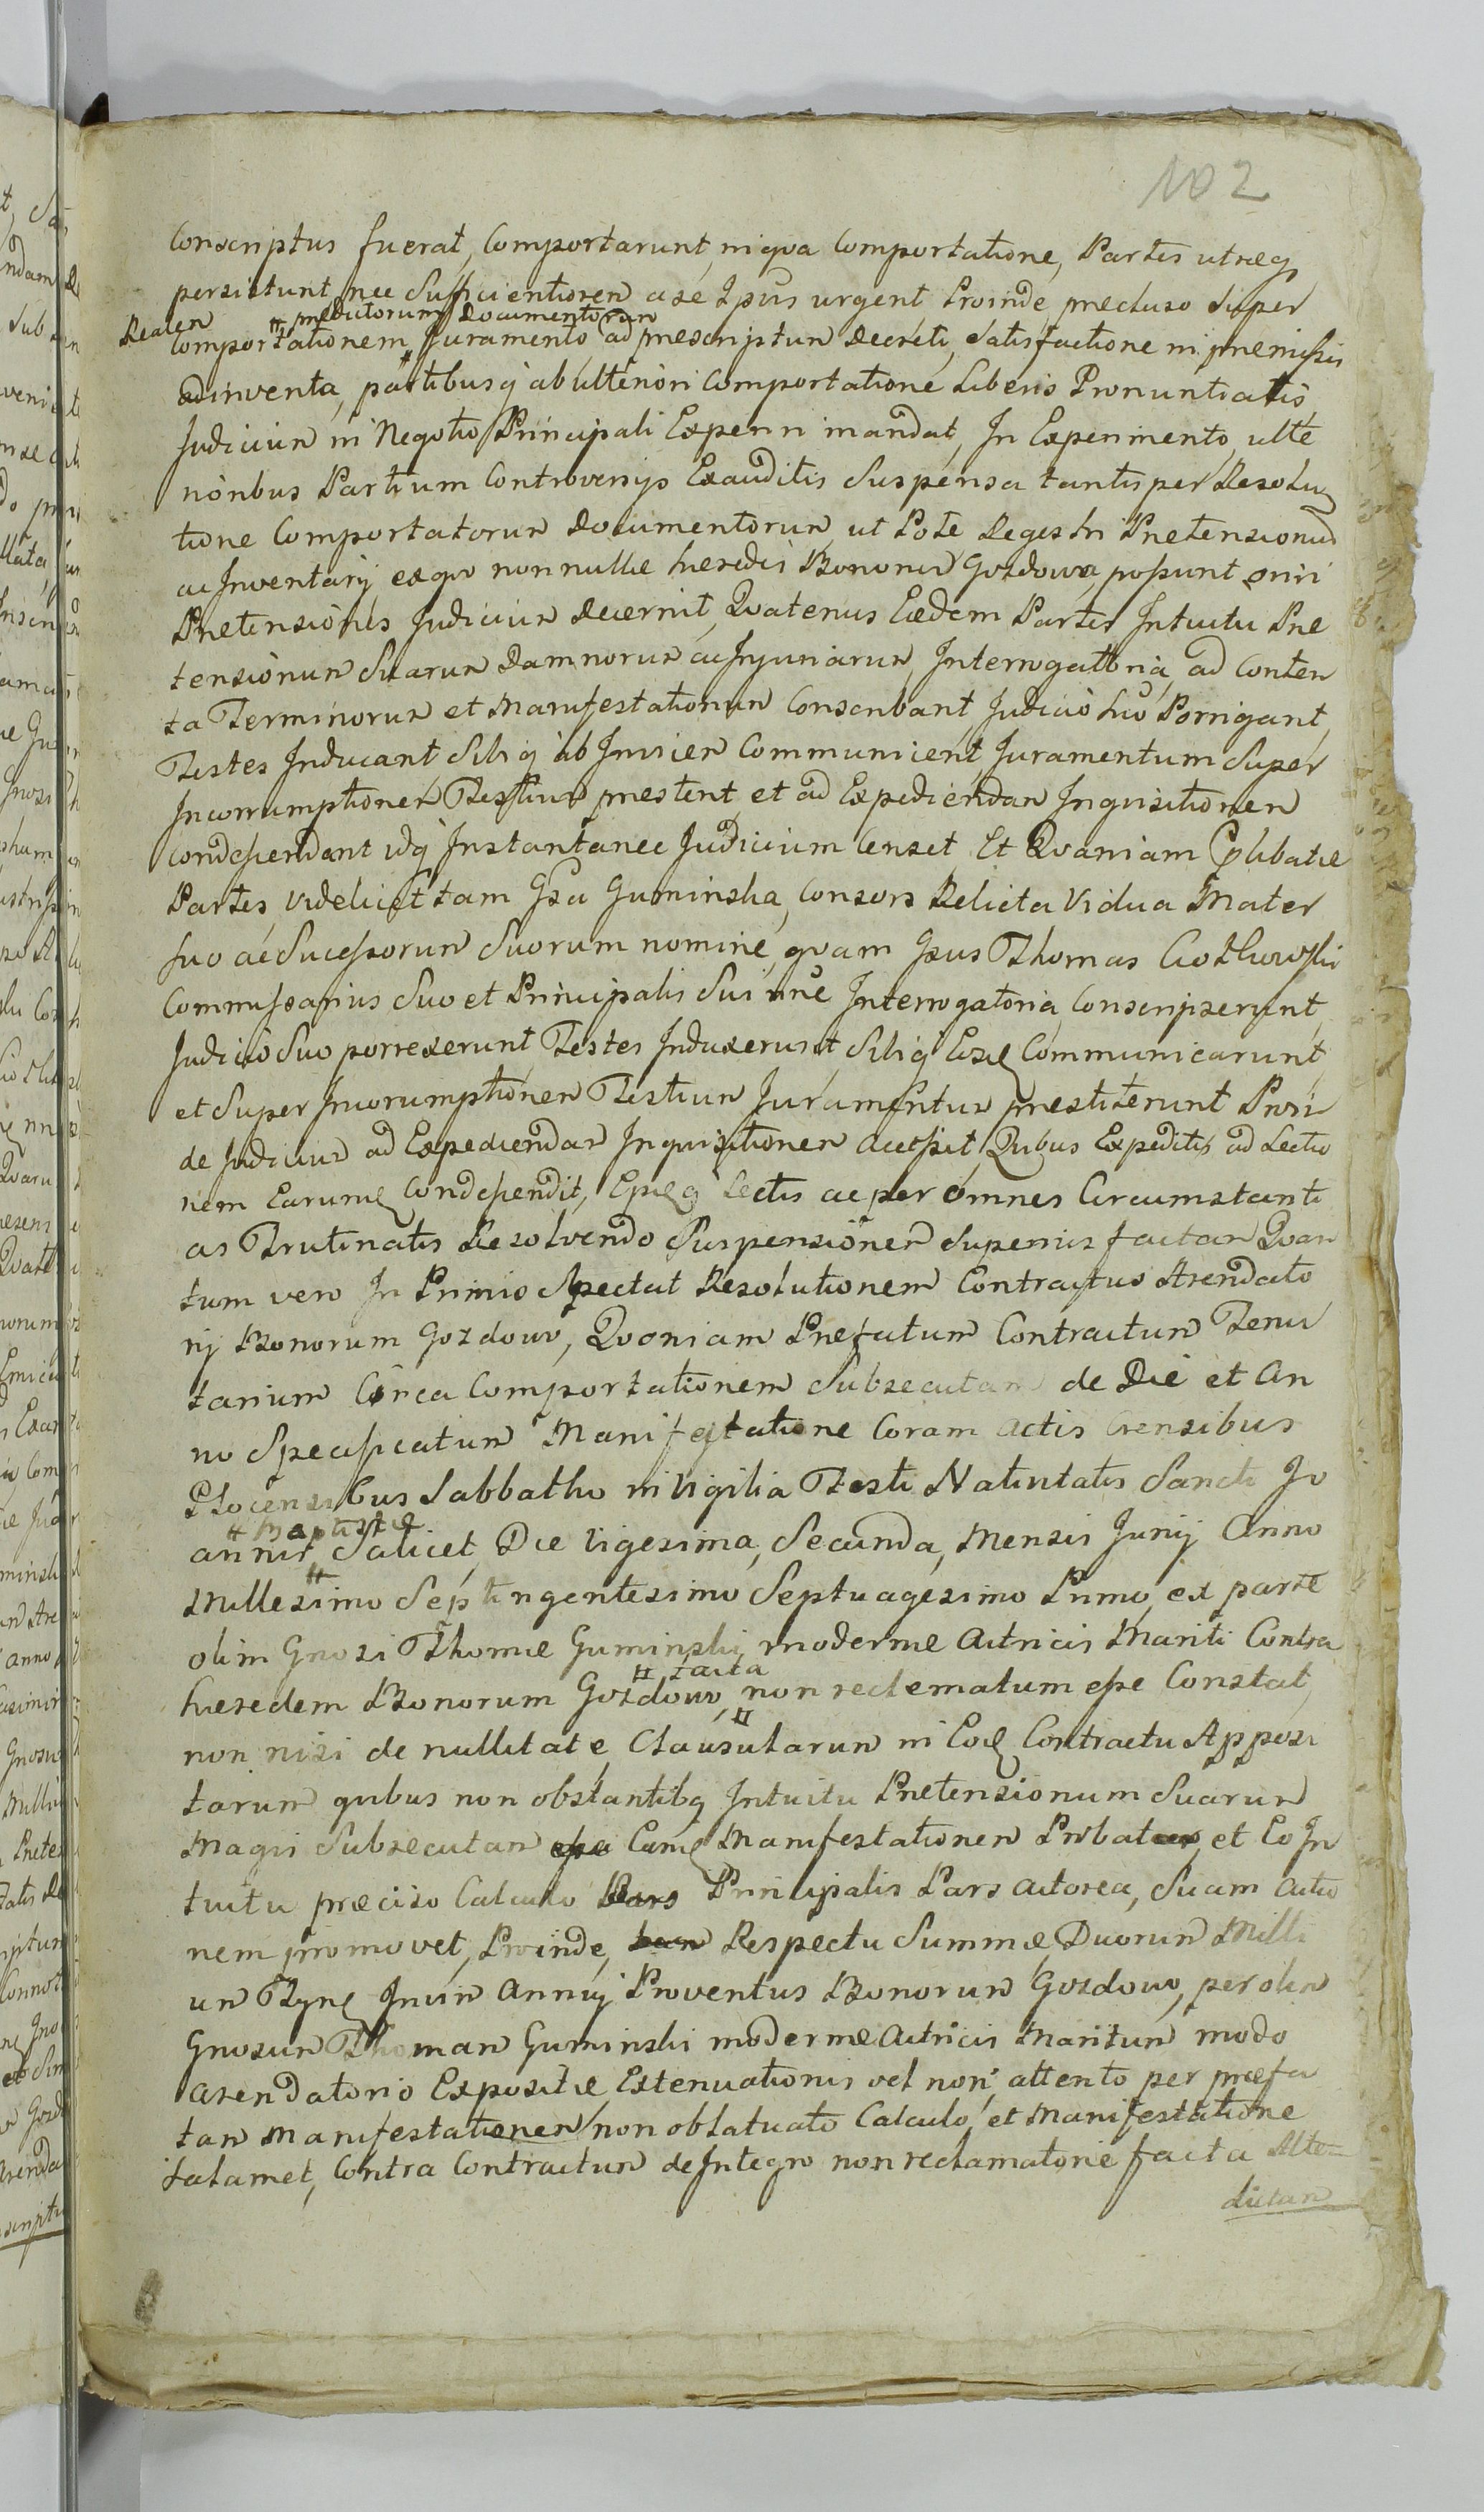 102
Conscriptus fuerat, Comportarunt, in qva Comportatione, Partes utræq
persistunt nec Sufficientioren a se Ipsis urgent Proinde, precluso Super
Realen # predictorum Documentorum
Comportationem Juramento ad prescriptun Decreti, Satisfactione in premissis
adinventa, partibusq ab ulteriori Comportatione Liberis Pronuntiatis
Judiciun in Negotio Principali Experiri mandat, In Experimento, ulte
rioribus Partium Controversijs Exauditis Suspensa tantisper Resolu
tione Comportatorun Documentorun, ut Pote Regestri Pretensionun
ac Inventarij ex qvo nonnullæ heredis Bonorun Gozdowo, possunt oriri
Pretensiones Judiciun decernit, Qvatenus Eædem Partes Intuitu Præ
tensionun Suarun Damnorun ac Injuriarun, Interrogatoria, ad Conten
ta Terminorun et Manifestationun Conscribant, Judicio Suo Porrigant,
Testes Inducant, Sibiq ab Invicen Communicent, Juramentum Super
Incorrumptionen Testiun prestent et ad Expediendan Inqvisitionen
condescendant idq Instantanee Judicium Censet Et Qvoniam
Partes, videlicet tam Gsa Guminska, Consors Relicta Vidua Mater
suo ac Sucessorun Suorum nomine, qvam Gsus Thomas
Commissarius Suo et Principalis Sui nne Interrogatoria, Conscripserunt,
Judicio Suo porrexerunt, Testes Induxerunt, Sibiq Communicarunt,
et Super Incorumptionen Testiun Juramentun prestiterunt Proin
de Judiciun ad Expediendan Inqvisitionen acessit, Qvibus Expeditis ad Lectio
nem Condescendit, Lectis ac per omnes Circumstanti
as Trutinatis Resolvendo Suspensionen Superius factan Qvan
tum vero In Primis Spectat Resolutionem Contractus Arendato
rij Bonorum Gozdowo, Qvoniam Prefatum Contractun Tenu
tarium Circa Comportationem Subsecutam de Die et An
no Specificatun Manifestatione Coram Actis Crensibus
Plocensibus Sabbatho in Vigilia Festi Nativitatis Sancti Jo
# Baptistæ
annis # Scilicet, Die Vigesima, Secunda, Mensis Junij Anno
Millesimo Septingentesimo Septuagesimo Primo, ex parte
olim Gnosi Thomæ Guminski, modernæ Actricis Mariti Contra
# facta
hæredem Bonorum Gozdowo, # non reclematum esse Constat,
non nisi de nullitate Clausularun in Contractu Apposi
tarum qvibus non obstantibq Intuitu Pretensionum Suarun
Magis Subsecutan esse Manifestationen Probatur, et Eo In
tuitu præciso Calculo Pars Principalis Pars Actorea, Suam Actio
nem promovet, Proinde, Respectu Summæ, Duorun Milli
un Annuj Proventus Bonorun Gozdowo, per olin
Gnosun Thoman Guminski modernæ Actricis Maritun modo
arendatorio Expositæ Extenuationis vel non, attento per præfa
tan Manifestationen non oblatuato Calculo, et Manifestatione
talamet, Contra Contractun de Integro non reclamatorie facta Alte